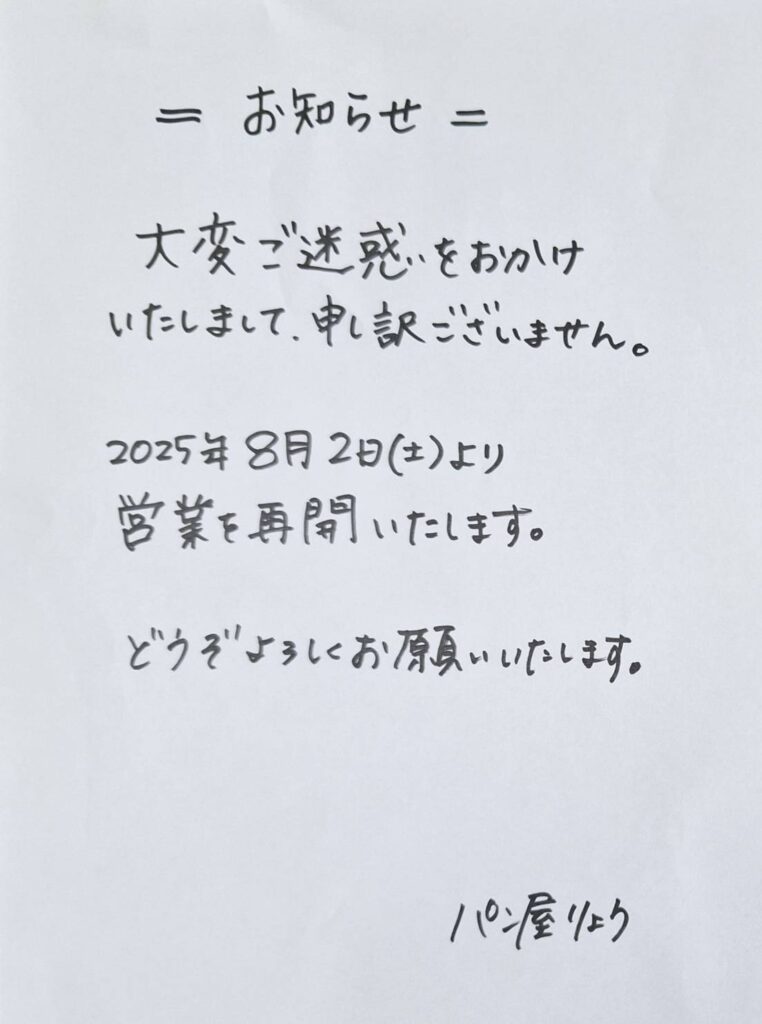 = お知らせ =
大変ご迷惑をおかけ
いたしまして、申し訳ございません。
2025年8月2日(土)より
営業を再開いたします。
どうぞよろしくお願いいたします。
パン屋りょく